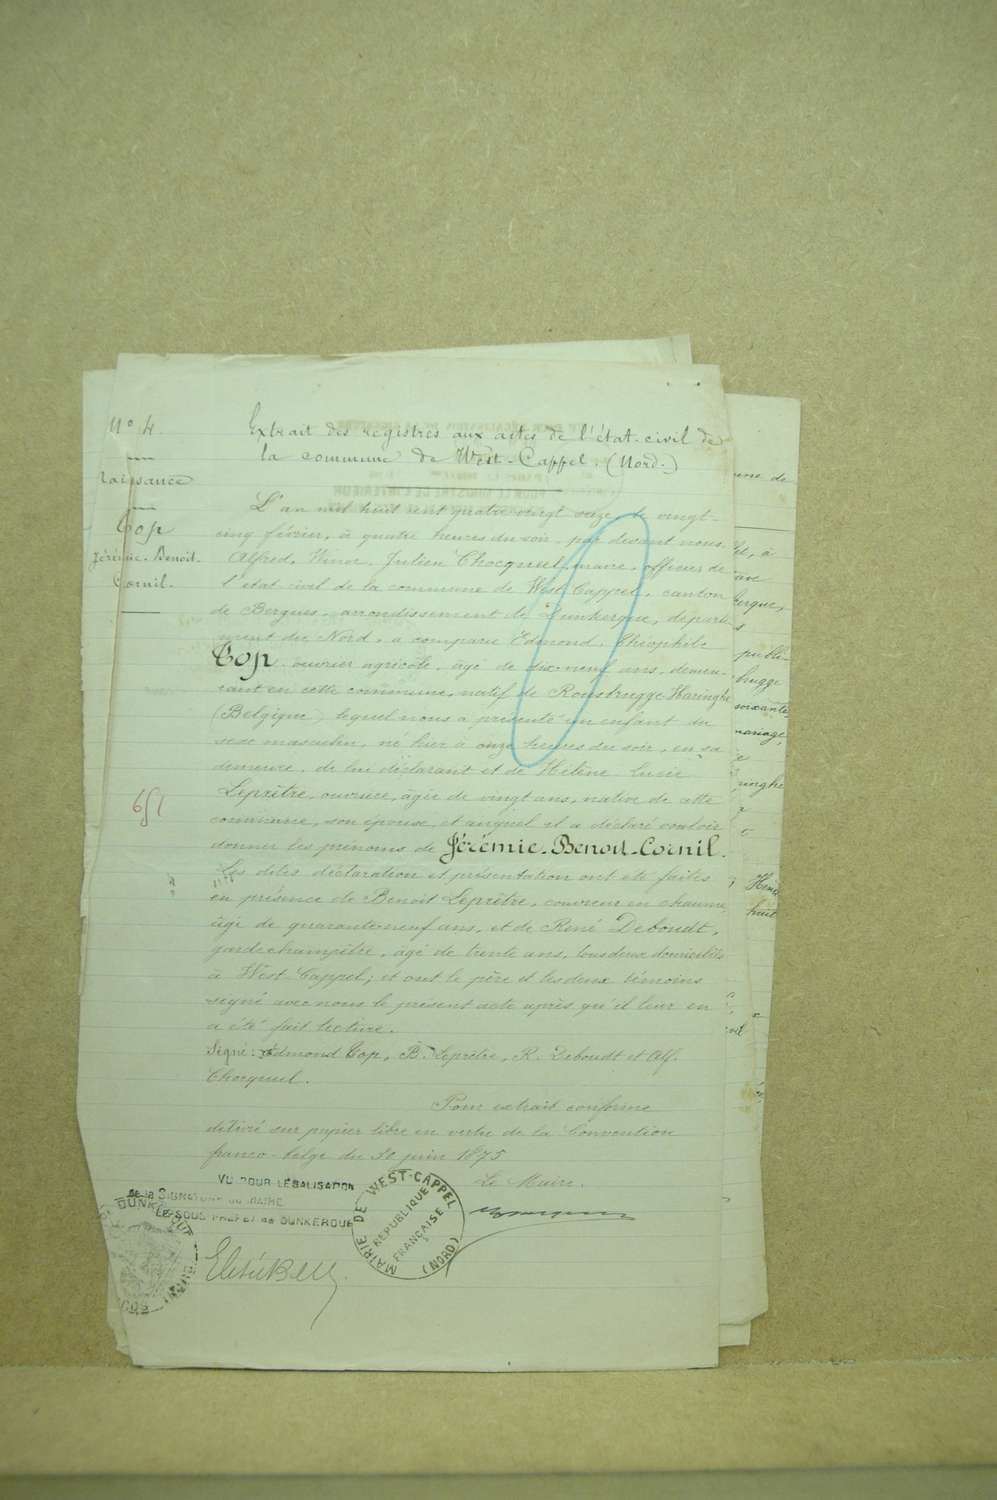 N° 4.
Naissance
Cop
Jérémie-Benoit-
Cornil.
Extrait des registres aux actes de l'état-civil de
la commune de West-Cappel. (Nord.)
L'an mil huit cent quatre-vingt onze, le vingt-
cinq février, à quatre heures du soir, par devant nous
Alfred, Winoc, Julien Chocqueel, maire, officier de
l'état civil de la commune de West-Cappel, canton
de Bergues, arrondissement de Dunkerque, départe-
ment du Nord, a comparu Edmond, Théophile
Cop ouvrier agricole, âgé de dix-neuf ans, demeu-
rant en cette commune, natif de Rousbrugge-Haringhe
(Belgique) lequel nous a présenté un enfant du
sexe masculin, né hier à onze heures du soir, en sa
demeure, de lui déclarant et de Hélène Lucie
Leprêtre, ouvrière, âgée de vingt ans, native de cette
commune, son épouse, et auquel il a déclaré vouloir
donner les prénoms de Jérémie-Benoit-Cornil.
Les dites déclaration et présentation ont été faites
en présence de Benoît Leprêtre, couvreur en chaume,
âgé de quarante-neuf ans, et de René Deboudt,
garde champêtre, âgé de trente ans, tous deux domiciliés
à West-Cappel; et ont le père et les deux témoins
signé avec nous le présent acte après qu'il leur en
a été fait lecture.
Signé: Edmond Cop, B. Leprêtre, R. Deboudt et Alf.
Chocqueel.
Pour extrait conforme
délivré sur papier libre en vertu de la Convention
franco-belge du 30 juin 1875
Le Maire.
VU POUR LÉGALISATION
de la SIGNATURE DU MAIRE
LE SOUS-PRÉFET de DUNKERQUE
MAIRIE DE WEST-CAPPEL (NORD)
RÉPUBLIQUE
FRANÇAISE
une de
à
publi-
brugge
soixante
mariage,
ringhe
huit